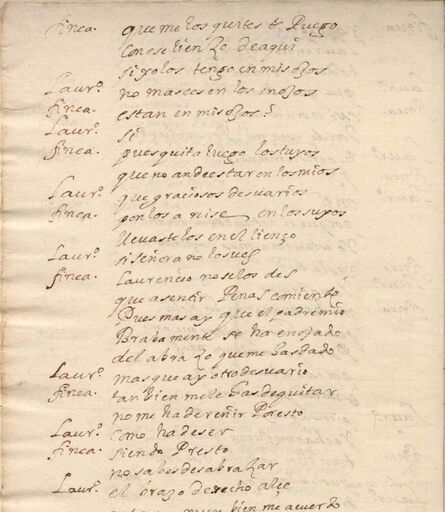 finea. que me los quites te Ruego
Con ese lienzo de aqui
si yo los tengo en mis ojos
Laurº. no mas ces en los enojos
finea. estan en mis ojos?
Laurº. si
finea. pues quita luego los tuyos
que no an de estar en los mios
Laurº. que graciosos desuarios
finea. ponlos a nise en los suyos
lleuastelos en el lienço
Laurº. si señora no los ues
finea. Laurencio no se los des
que a sentir Penas comienço
Pues mas ay que el padre mio
Brabamente se ha enojado
del abrazo que me has dado
Laurº. mas que ay otro desuario
finea. tanbien me le has de quitar
no me ha de reñir Por esto
Laurº. Como ha de ser
finea. siendo Presto
no sabes desabrazar
Laurº. el brazo derecho alçe
muy bien me acuerdo